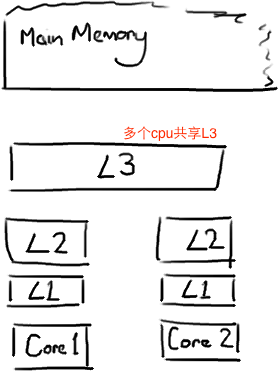 Main Memory
多个cpu共享L3
L3
L2 L2
L1 L1
Core 1 Core 2